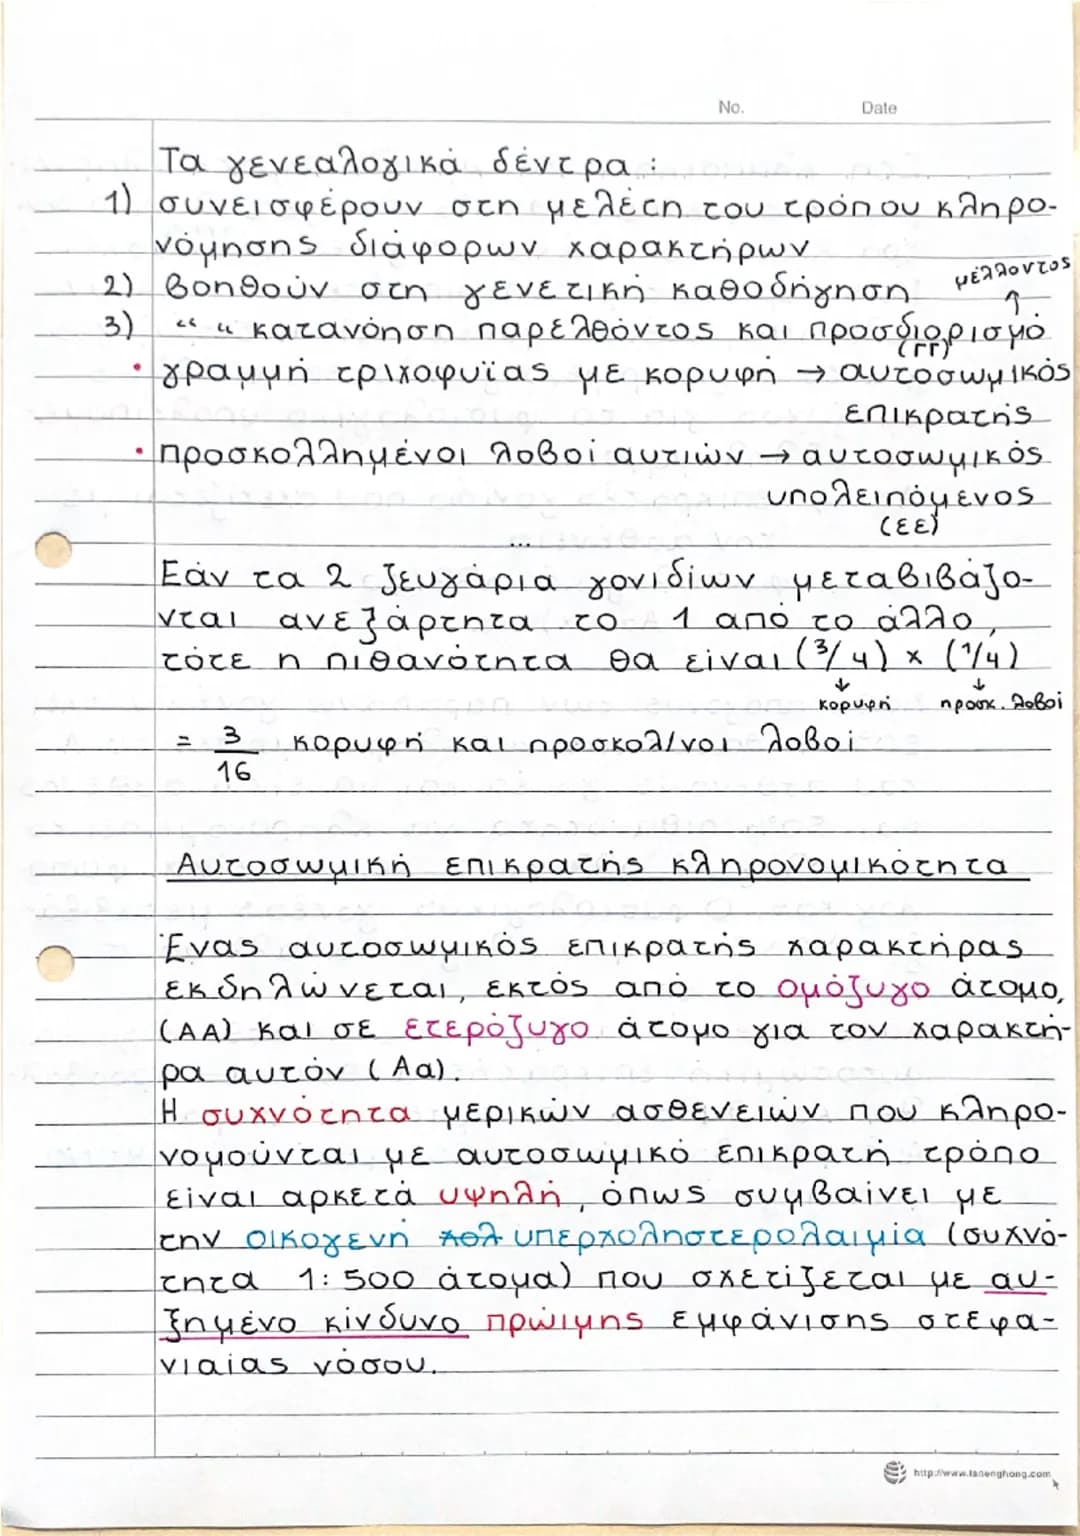 No. Date
Τα γενεαλογικά δέντρα :
1) συνεισφέρουν στη μελέτη του τρόπου κληρο-
νόμησης διάφορων χαρακτήρων
2) βοηθούν στη γενετική καθοδήγηση
μέλλοντος
↑
3) “ “ κατανόηση παρελθόντος και προσδιορισμό
(ΓΓ)
• γραμμή τριχοφυΐας με κορυφή → αυτοσωμικός
επικρατής
• προσκολλημένοι λοβοί αυτιών → αυτοσωμικός
υπολειπόμενος
(εε)
...
Εάν τα 2 ζευγάρια γονιδίων μεταβιβάζο-
νται ανεξάρτητα το 1 από το άλλο,
τότε η πιθανότητα θα είναι (3/4) × (1/4)
↓ ↓
κορυφή προσκ. λοβοί
= 3/16 κορυφή και προσκολ/νοι λοβοί
Αυτοσωμική επικρατής κληρονομικότητα
Ένας αυτοσωμικός επικρατής χαρακτήρας
εκδηλώνεται, εκτός από το ομόζυγο άτομο,
(ΑΑ) και σε ετερόζυγο άτομο για τον χαρακτή-
ρα αυτόν (Αα).
Η συχνότητα μερικών ασθενειών που κληρο-
νομούνται με αυτοσωμικό επικρατή τρόπο
είναι αρκετά υψηλή, όπως συμβαίνει με
την οικογενή χολ υπερχοληστερολαιμία (συχνό-
τητα 1:500 άτομα) που σχετίζεται με αυ-
ξημένο κίνδυνο πρώιμης εμφάνισης στεφα-
νιαίας νόσου.